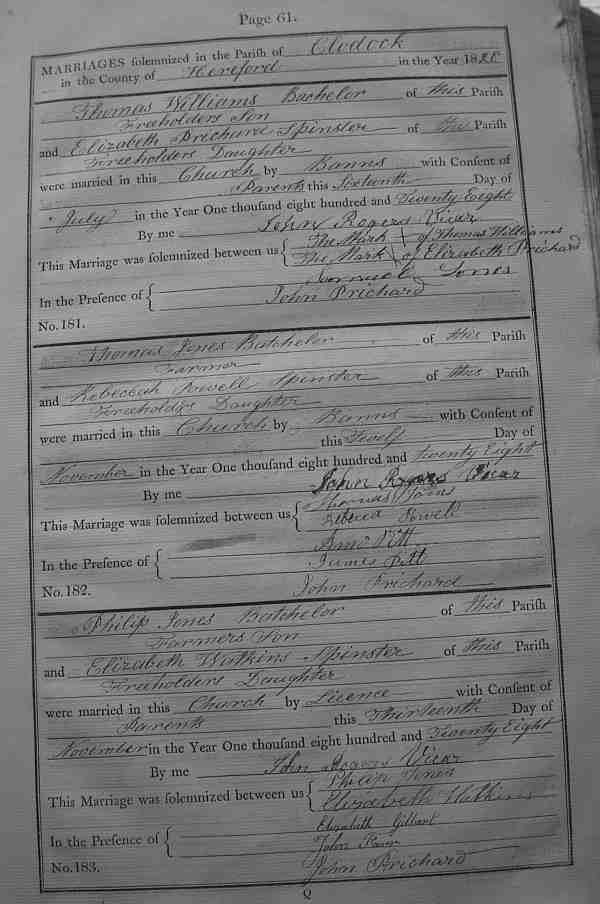 Page 61.
MARRIAGES solemnized in the Parish of Clodock
in the County of Hereford in the Year 1828
Thomas Williams Bachelor of this Parish
Freeholders Son
and Elizabeth Prichard Spinster of this Parish
Freeholders Daughter
were married in this Church by Banns with Consent of
Parents this Sixteenth Day of
July in the Year One thousand eight hundred and Twenty Eight
By me John Rogers Vicar
This Marriage was solemnized between us { The Mark of Thomas Williams
The Mark of Elizabeth Prichard
In the Presence of { Jones
John Prichard
No. 181.
Thomas Jones Batchelor of this Parish
Farmer
and Rebeccah Powell Spinster of this Parish
Freeholders Daughter
were married in this Church by Banns with Consent of
this Twelf Day of
November in the Year One thousand eight hundred and Twenty Eight
By me John Rogers Vicar
This Marriage was solemnized between us { Thomas Jones
Rebecca Powell
In the Presence of { Pitt
James Pitt
No. 182. John Prichard
Philip Jones Batchelor of this Parish
Farmers Son
and Elizabeth Watkins Spinster of this Parish
Freeholders Daughter
were married in this Church by Licence with Consent of
Parents this Thirteenth Day of
November in the Year One thousand eight hundred and Twenty Eight
By me John Rogers Vicar
This Marriage was solemnized between us { Philip Jones
Elizabeth Watkins
In the Presence of { Elizabeth Gilbert
John
No. 183. John Prichard
Q